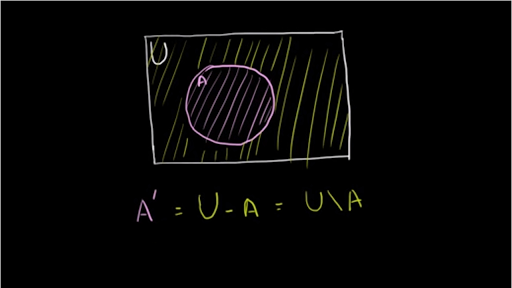 U
A
A' = U - A = U \ A